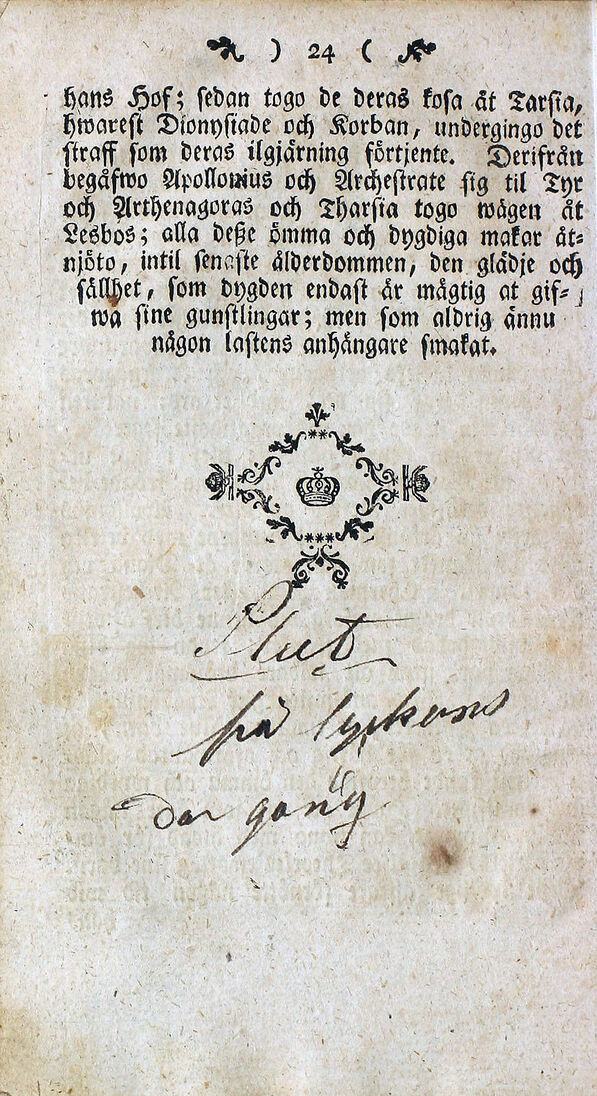 ) 24 (
hans Hof; sedan togo de deras kosa åt Tarsia,
hwarest Dionysiade och Korban, undergingo det
straff som deras ilgjärning förtjente. Derifrån
begåfwo Apollonius och Archestrate sig til Tyr
och Arthenagoras och Tharsia togo wägen åt
Lesbos; alla deße ömma och dygdiga makar åt=
njöto, intil senaste ålderdommen, den glädje och
sällhet, som dygden endast är mägtig at gif=
wa sine gunstlingar; men som aldrig ännu
någon lastens anhängare smakat.
Slut
på lyckans